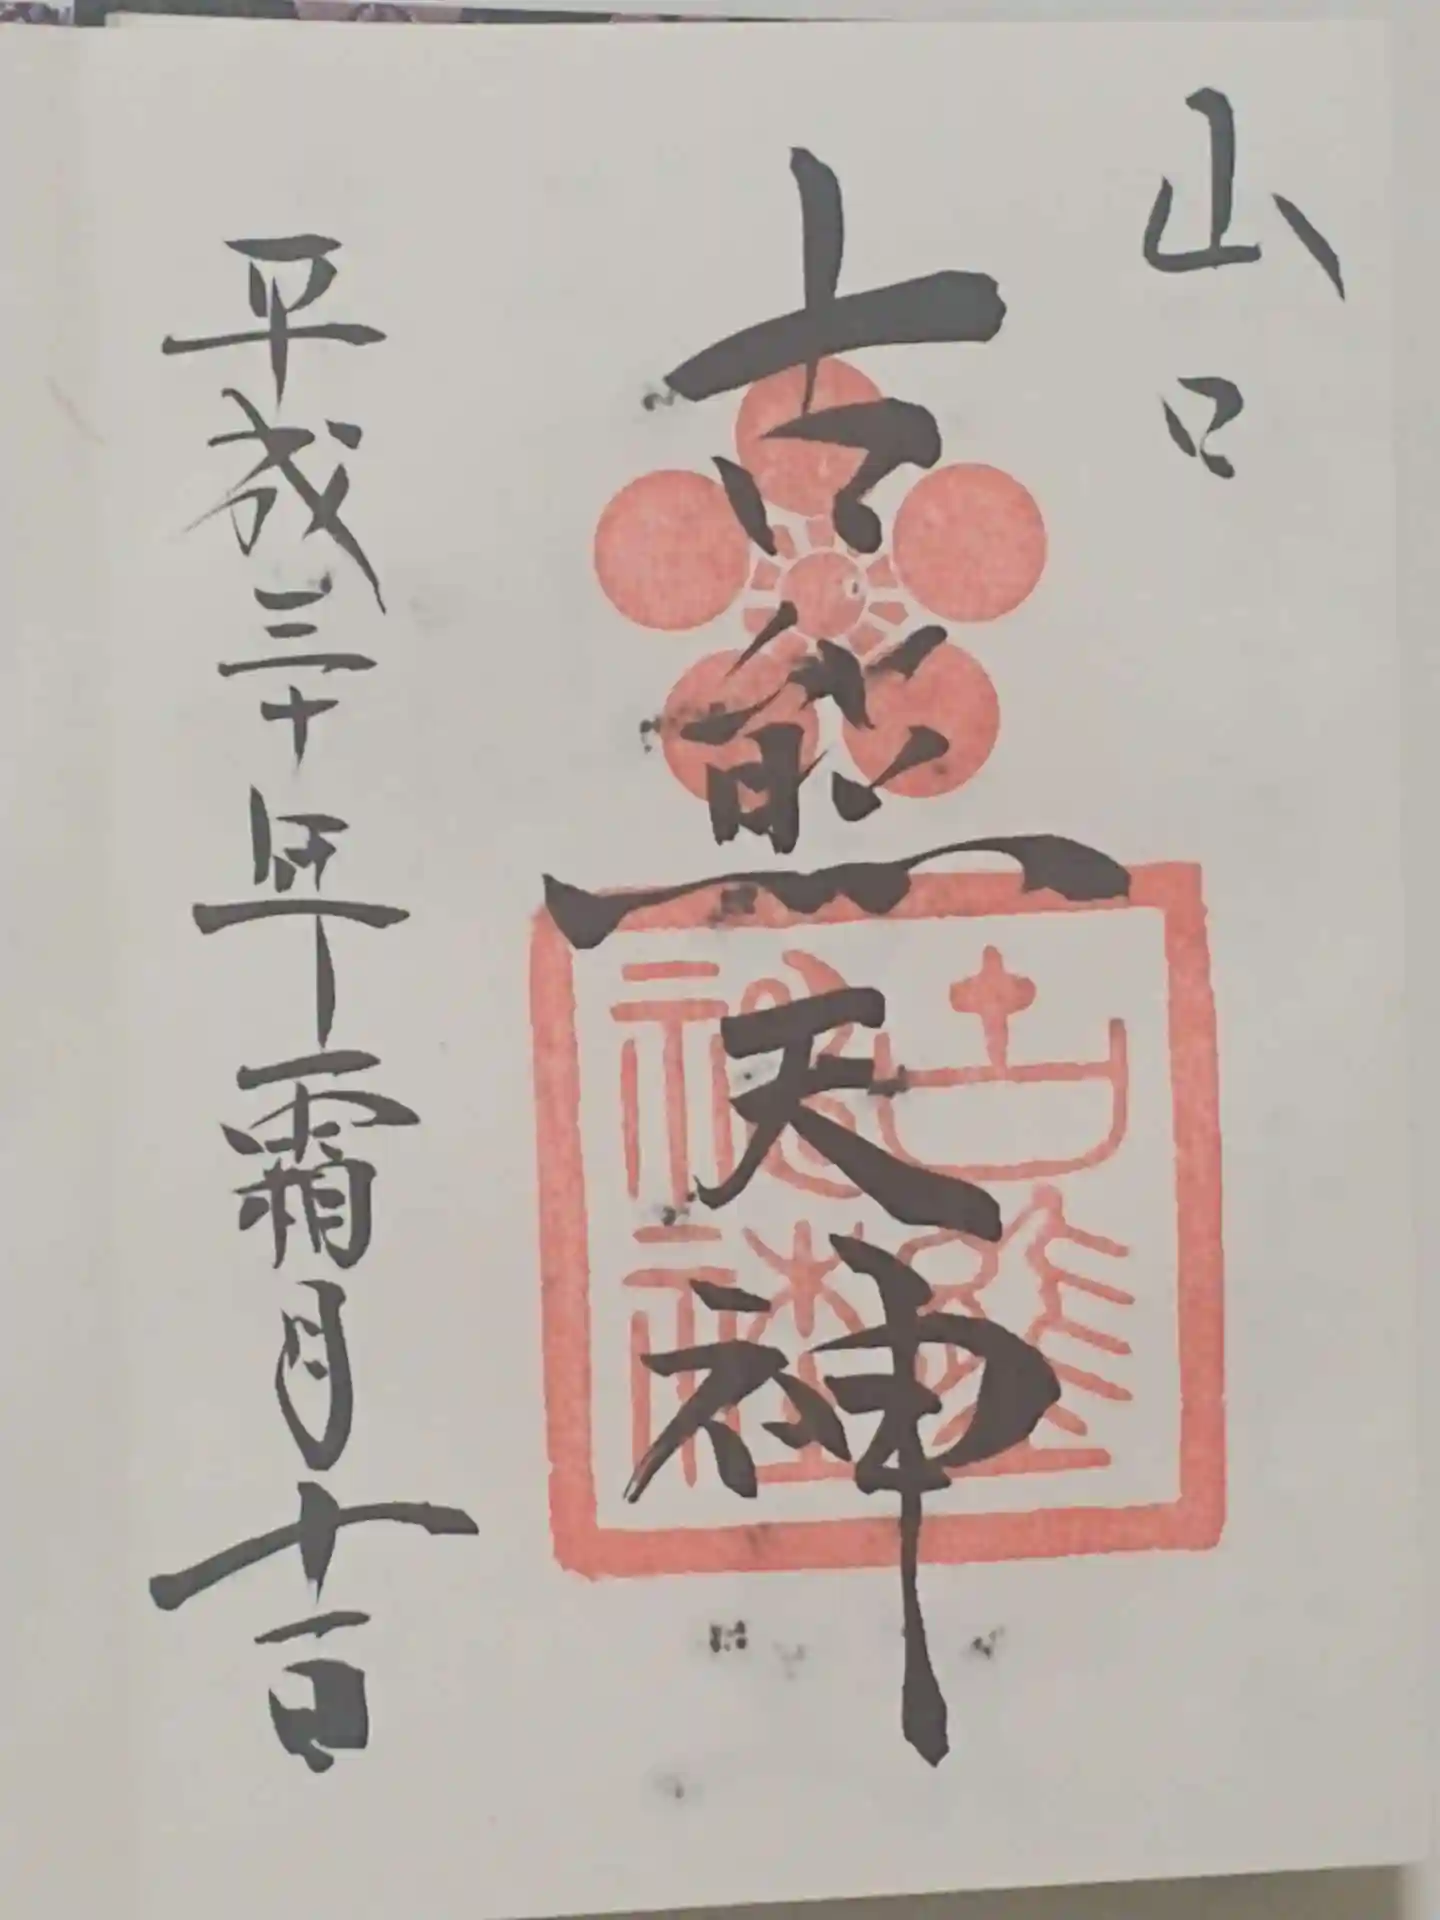 山口
古熊天神
古熊
神社
平成三十年霜月十一日